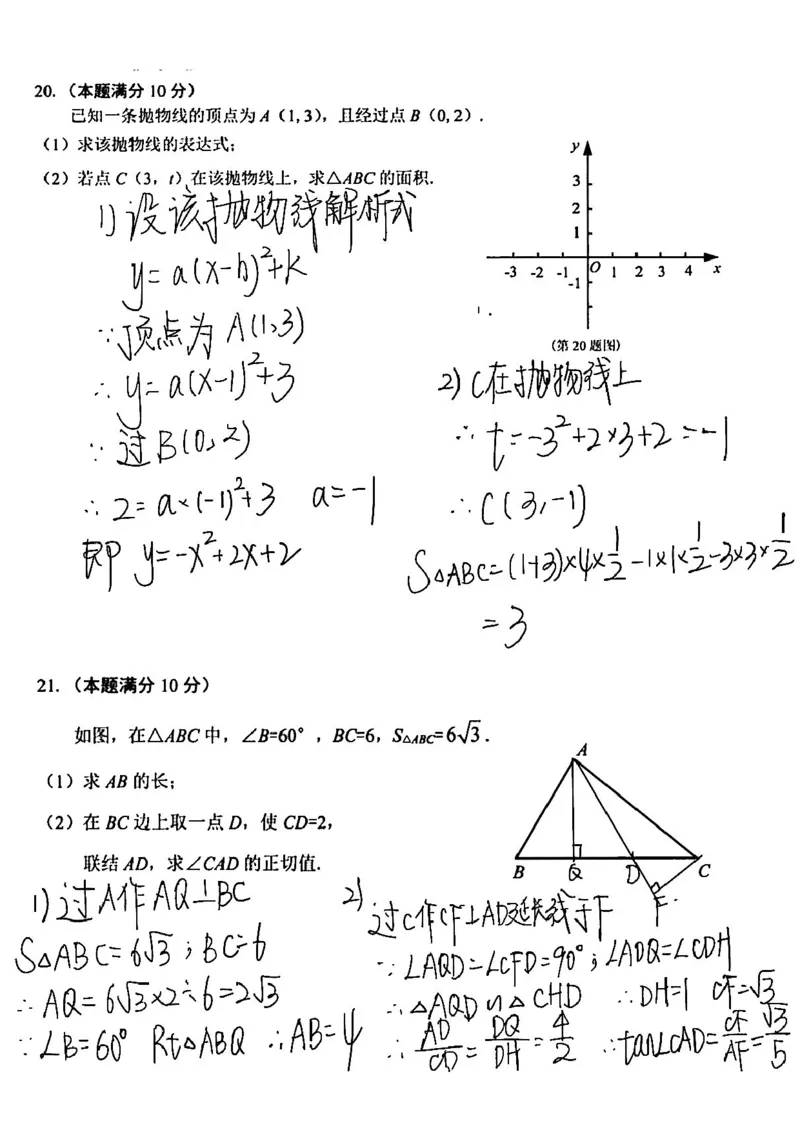 20.（本题满分 10 分）
已知一条抛物线的顶点为 A（1, 3），且经过点 B（0, 2）.
（1）求该抛物线的表达式；
（2）若点 C（3，t）在该抛物线上，求△ABC 的面积.
y
3
2
1
-3 -2 -1 O 1 2 3 4 x
-1
（第 20 题图）
1) 设该抛物线解析式
y=a(x-h)²+k
∵顶点为 A(1,3)
∴ y=a(x-1)²+3
∵ 过 B(0,2)
∴ 2=a×(-1)²+3 a=-1
即 y=-x²+2x+2
2) C在抛物线上
∴ t=-3²+2×3+2=-1
∴ C(3,-1)
S△ABC=(1+3)×4×1/2-1×1×1/2-3×3×1/2
=3
21.（本题满分 10 分）
如图，在△ABC 中，∠B=60°，BC=6，S△ABC=6√3.
（1）求 AB 的长；
（2）在 BC 边上取一点 D，使 CD=2，
联结 AD，求∠CAD 的正切值.
A
B Q D C
F
1) 过A作AQ⊥BC
S△ABC=6√3；BC=6
∴ AQ=6√3×2÷6=2√3
∵ ∠B=60° Rt△ABQ ∴AB=4
2) 过C作CF⊥AD延长线于F
∵ ∠AQD=∠CFD=90°；∠ADQ=∠CDH
∴ △AQD∽△CHD ∴DH=1 CF=√3
∴ AD/CD=DQ/DH=4/2 ∴tan∠CAD=CF/AF=√3/5